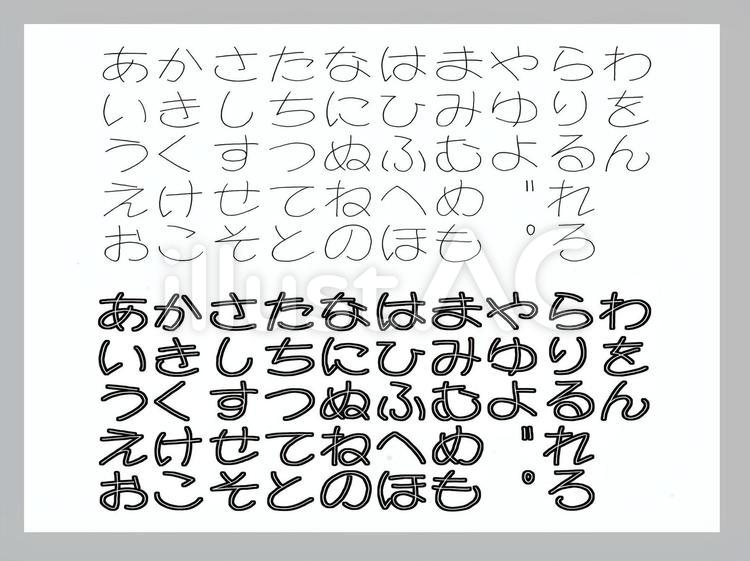 あかさたなはまやらわ
いきしちにひみゆりを
うくすつぬふむよるん
えけせてねへめ゛れ
おこそとのほも゜ろ
illustAC
あかさたなはまやらわ
いきしちにひみゆりを
うくすつぬふむよるん
えけせてねへめ゛れ
おこそとのほも゜ろ